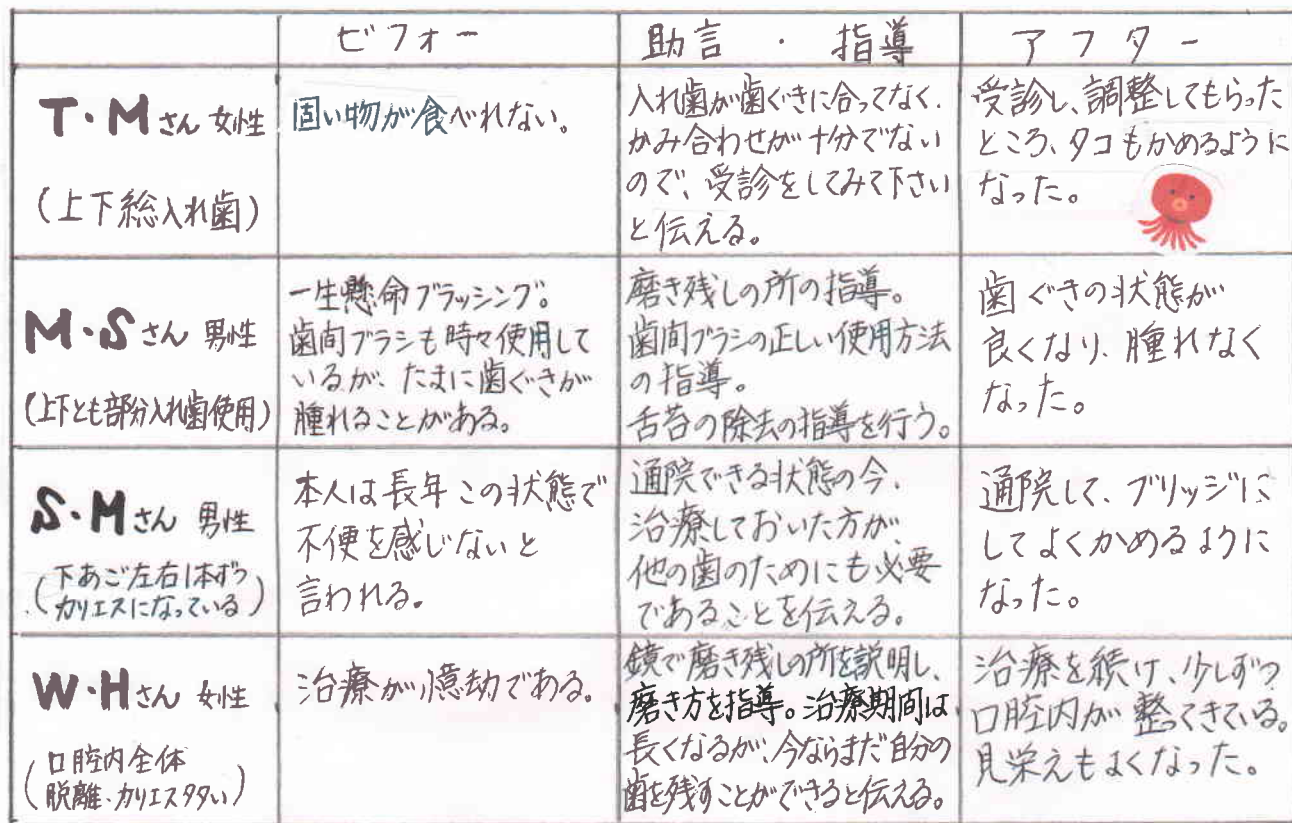 ビフォー
助言・指導
アフター
T・Mさん 女性
(上下総入れ歯)
固い物が食べれない。
入れ歯が歯ぐきに合ってなく、
かみ合わせが十分でない
ので、受診をしてみて下さい
と伝える。
受診し、調整してもらった
ところ、タコもかめるように
なった。
M・Sさん 男性
(上下とも部分入れ歯使用)
一生懸命ブラッシング。
歯間ブラシも時々使用して
いるが、たまに歯ぐきが
腫れることがある。
磨き残しの所の指導。
歯間ブラシの正しい使用方法
の指導。
舌苔の除去の指導を行う。
歯ぐきの状態が
良くなり、腫れなく
なった。
S・Mさん 男性
(下あご左右1本ずつ
カリエスになっている)
本人は長年この状態で
不便を感じないと
言われる。
通院できる状態の今、
治療しておいた方が、
他の歯のためにも必要
であることを伝える。
通院して、ブリッジに
してよくかめるように
なった。
W・Hさん 女性
(口腔内全体
脱離・カリエス多い)
治療が億劫である。
鏡で磨き残しの所を説明し、
磨き方を指導。治療期間は
長くなるが、今ならまだ自分の
歯を残すことができると伝える。
治療を続け、少しずつ
口腔内が整ってきている。
見栄えもよくなった。